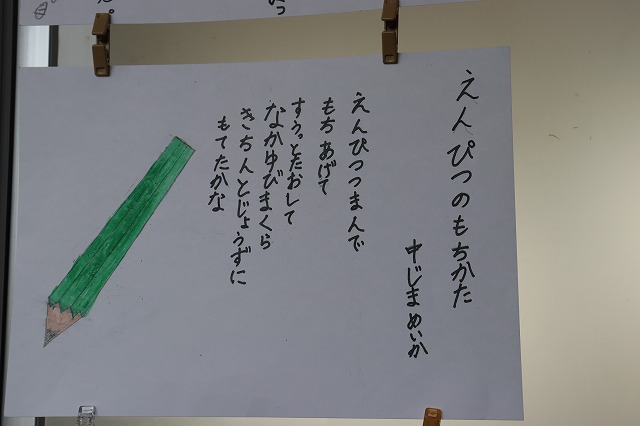 えんぴつのもちかた
中じまめいか
えんぴつつまんで
もちあげて
すうっとたおして
なかゆびまくら
きちんとじょうずに
もてたかな